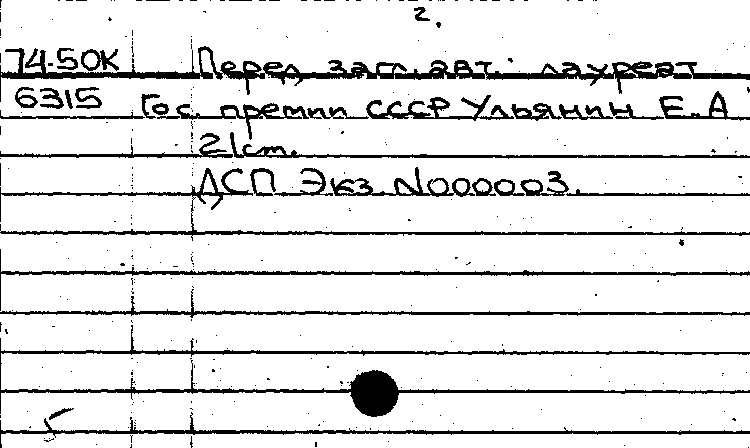 2.
74-50К Перед загл. авт.: лауреат
6315 Гос. премии СССР Ульянин Е.А
21cm.
ДСП Экз. N000003.
5